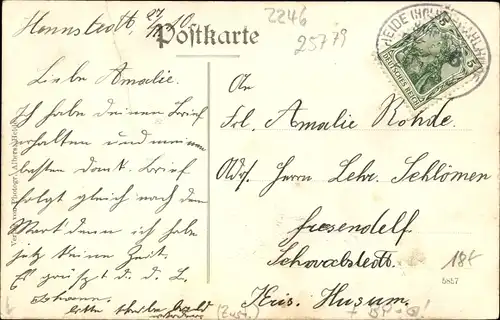 Hennstedt, 27/ 10.
Postkarte
2246
25779
HEIDE (HOLST)
DEUTSCHES REICH
5
5
Liebe Amalie.
Ich habe deinen Brief
erhalten und meinen
besten Dank. Brief
folgt gleich nach den
Markt denn ich habe
jetz keine Zeit.
Es grüßt d. d. L.
Johann.
bitte schreibe bald
An
Frl. Amalie Rohde.
Adr. Herrn Lehr. Schlömer
fresendelf
Schwabstedt
Kris. Husum.
18
5857